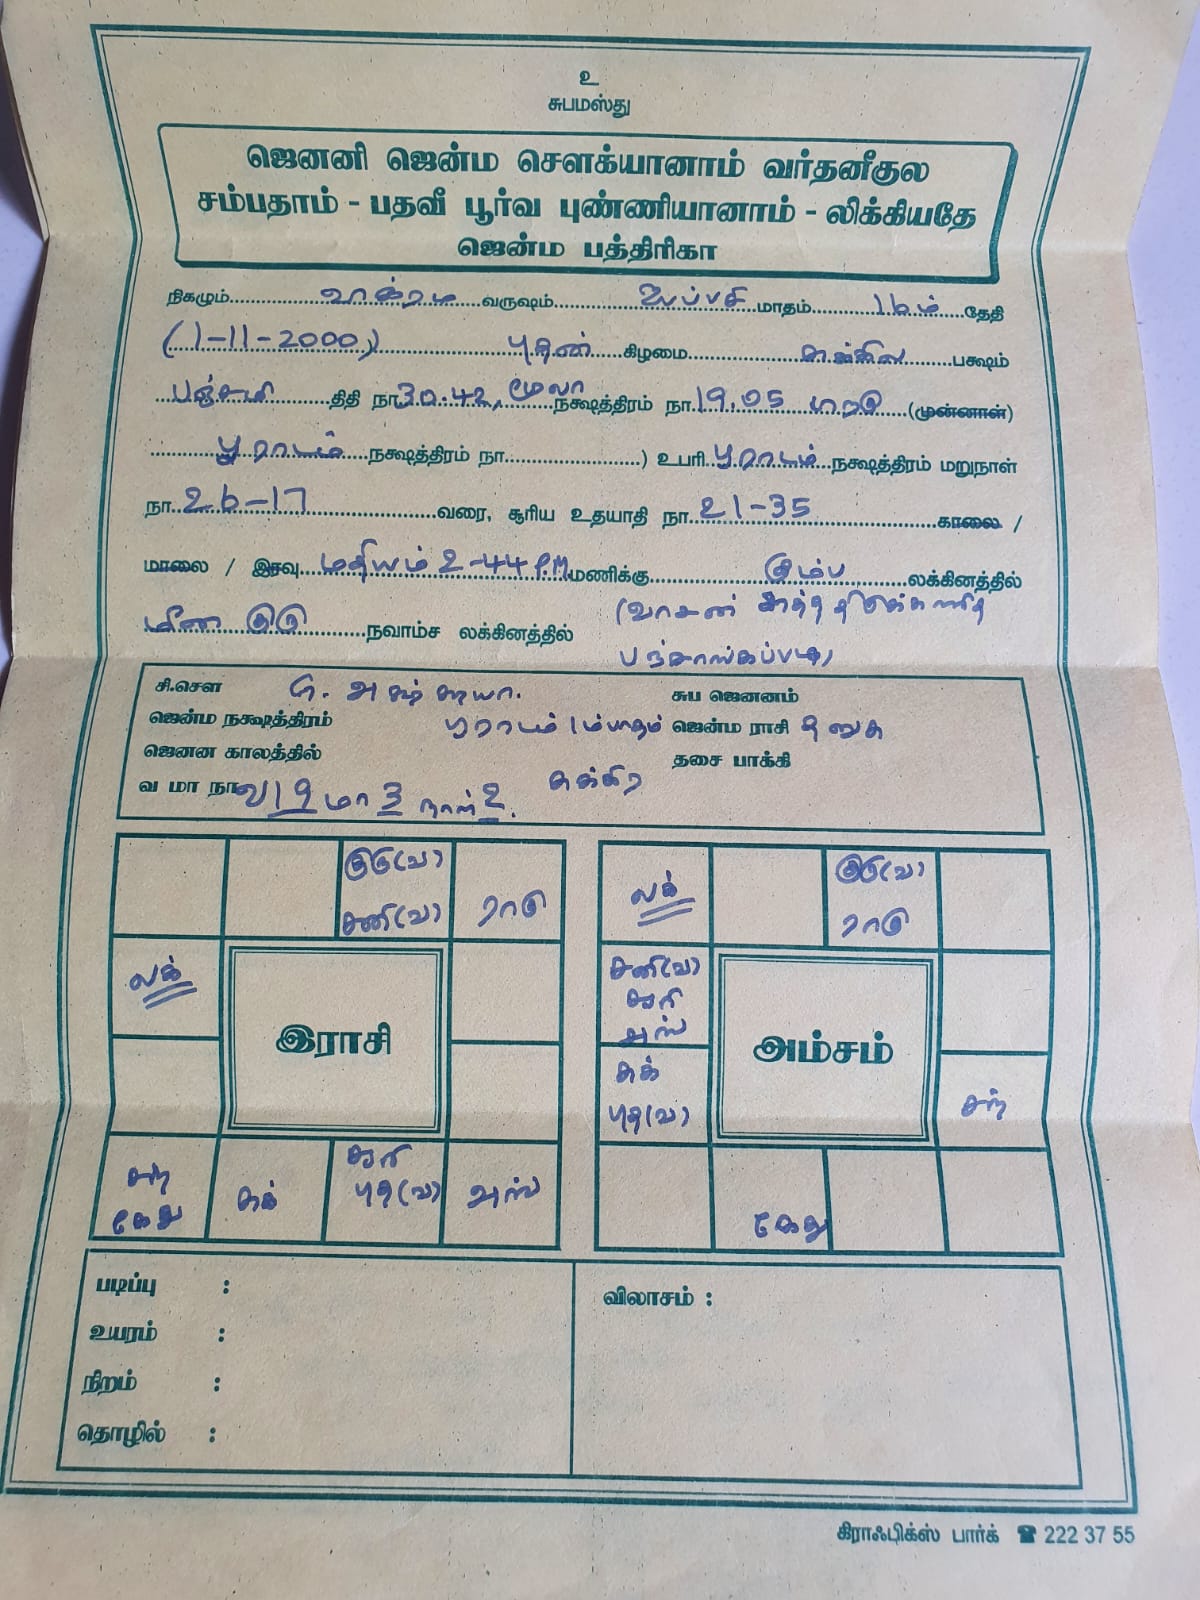 உ
சுபமஸ்து
ஜெனனி ஜென்ம சௌக்யானாம் வர்தனீகுல
சம்பதாம் - பதவீ பூர்வ புண்ணியானாம் - லிக்கியதே
ஜென்ம பத்திரிகா
நிகழும் வருஷம் ஐப்பசி மாதம் 16ம் தேதி
(1-11-2000) புதன் கிழமை பக்ஷம்
பஞ்சமி திதி நா 30.42, மூலா நக்ஷத்திரம் நா 19.05 (முன்னாள்)
பூராடம் நக்ஷத்திரம் நா ) உபரி பூராடம் நக்ஷத்திரம் மறுநாள்
நா 26-17 வரை, சூரிய உதயாதி நா 21-35 காலை /
மாலை / இரவு மதியம் 2-44 P.M மணிக்கு கும்ப லக்கினத்தில்
மீன குரு நவாம்ச லக்கினத்தில் (வாசன் சுத்த திருக்கணித
பஞ்சாங்கப்படி)
சி.சௌ சுப ஜெனனம்
ஜென்ம நக்ஷத்திரம் பூராடம் 1ம் பாதம் ஜென்ம ராசி தனுசு
ஜெனன காலத்தில் சுக்கிர தசை பாக்கி
வ மா நா வ 19 மா 3 நாள் 2.
குரு(வ)
சனி(வ) ராகு
லக்
இராசி
சந்
கேது சுக் சூரி
புத(வ) செவ்
லக் குரு(வ)
ராகு
சனி(வ)
சூரி
செவ்
அம்சம்
சுக்
புத(வ) சந்
கேது
படிப்பு :
உயரம் :
நிறம் :
தொழில் :
விலாசம் :
கிராஃபிக்ஸ் பார்க் ☎ 222 37 55